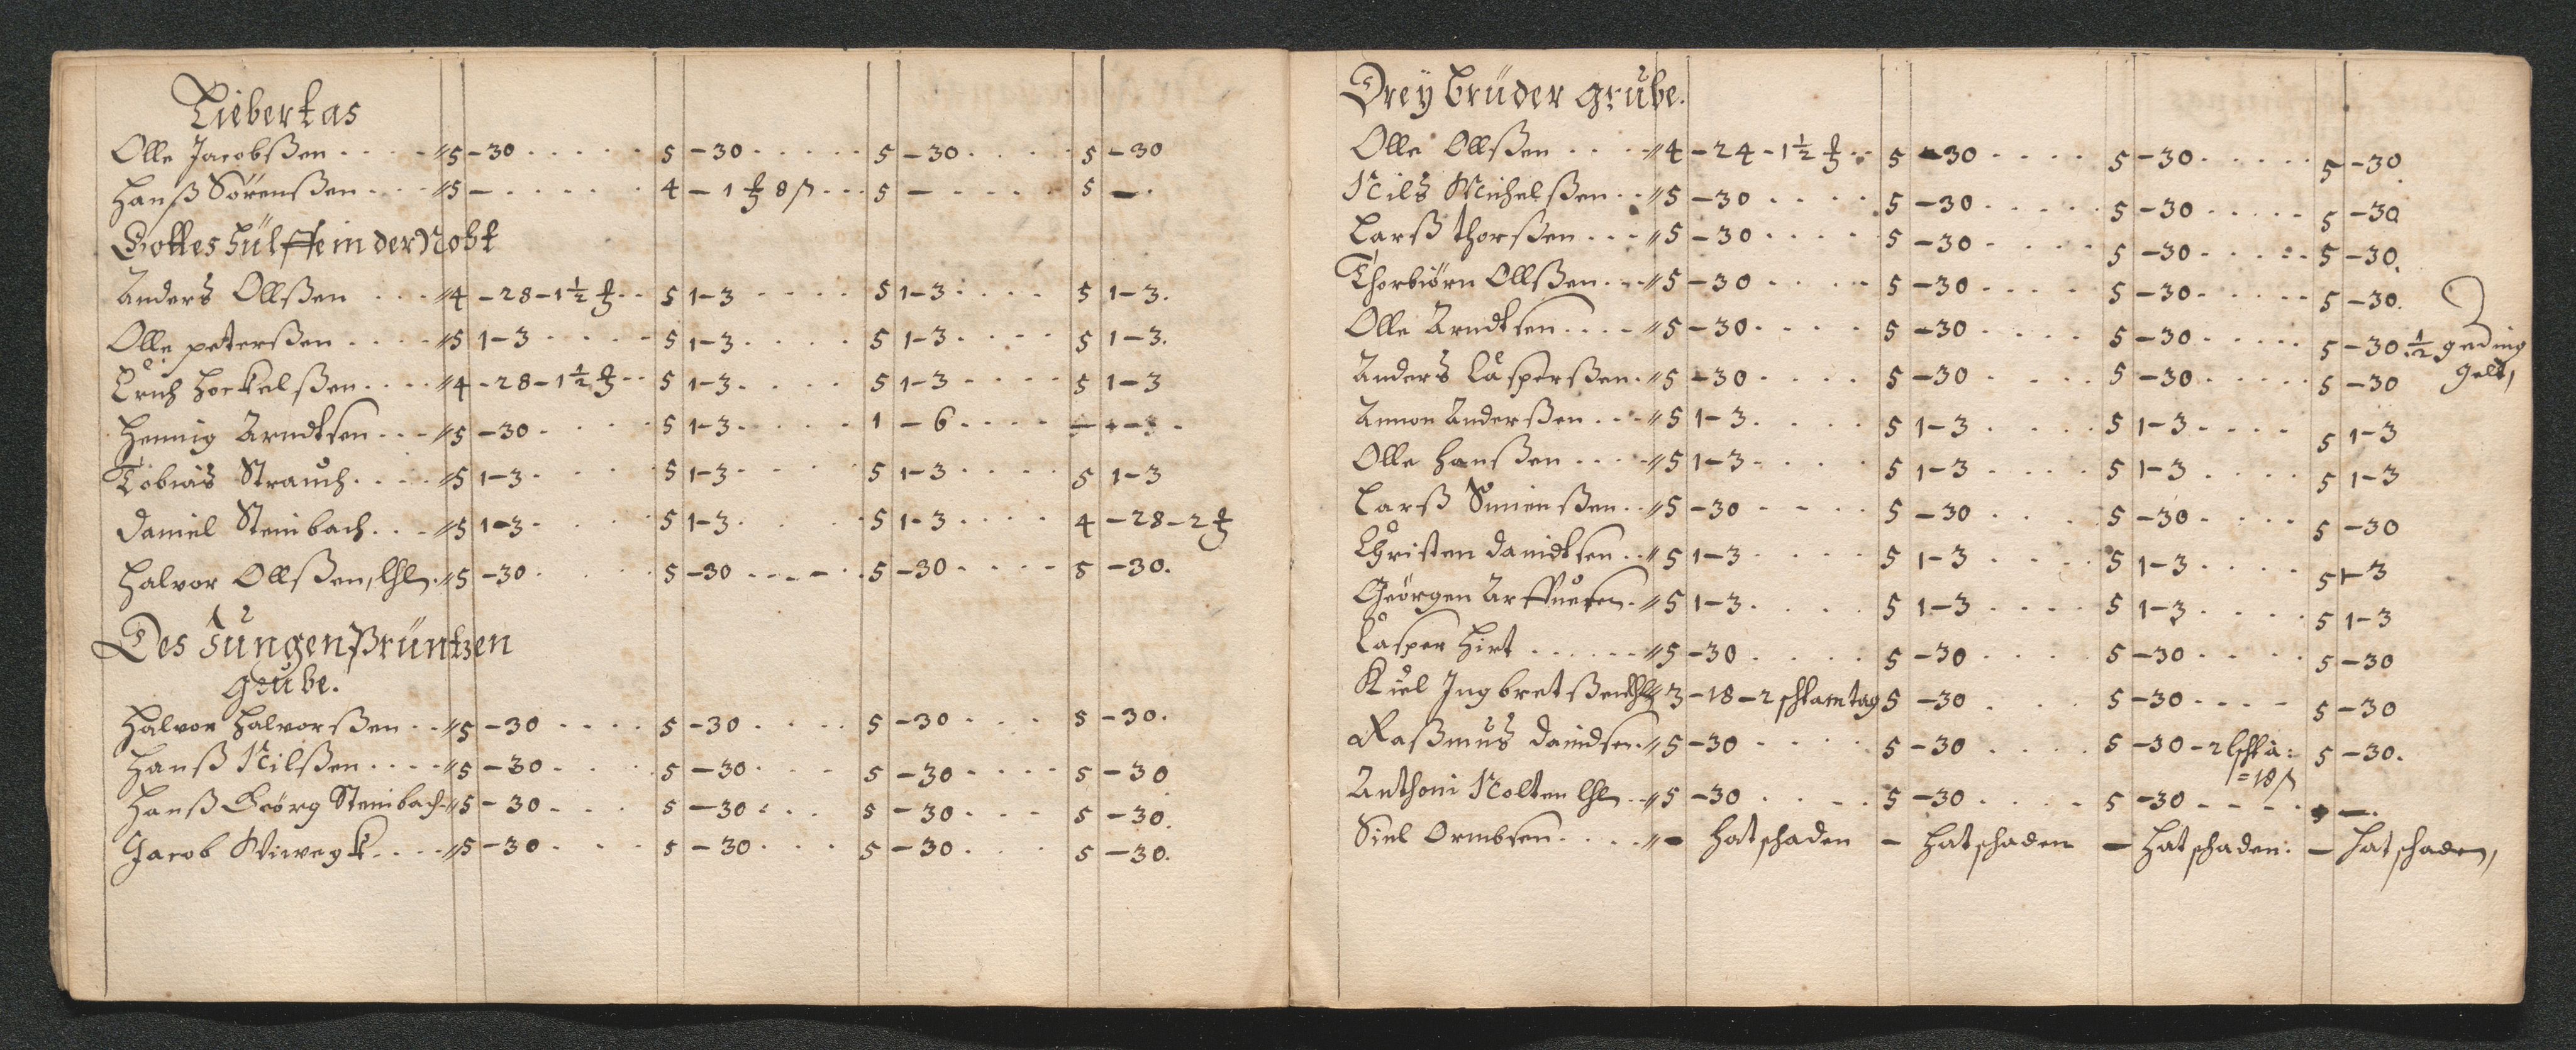 Liebertas
Olle Jacobßen . . . . 5 - 30 . . . . . 5 - 30 . . . . . 5 - 30 . . . . 5 - 30
Hanß Sörenßen . . . 5 - . . . . . . 4 - 1 8 ß . . . 5 - . . . . . 5 - .
Gottes hülffe in der Noht
Anders Ollßen . . . 4 - 28 - 1½ . . 5 1 - 3 . . . . 5 1 - 3 . . . . 5 1 - 3.
Olle peterßen . . . . 5 1 - 3 . . . . 5 1 - 3 . . . . 5 1 - 3 . . . . 5 1 - 3.
Erich . . . . 4 - 28 - 1½ . . 5 1 - 3 . . . . 5 1 - 3 . . . . 5 1 - 3
Hennig Arndtsen . . . 5 - 30 . . . . 5 1 - 3 . . . . 1 - 6 . . . . - - - .
Tobias Strauch . . . . 5 1 - 3 . . . . 5 1 - 3 . . . . 5 1 - 3 . . . . 5 1 - 3
Daniel Steinbach . . . 5 1 - 3 . . . . 5 1 - 3 . . . . 5 1 - 3 . . . . 4 - 28 - 2
Halvor Ollßen, lhl. 5 - 30 . . . . 5 - 30 . . . . 5 - 30 . . . . 5 - 30.
Des Jungen Prüntzen
grube.
Halvor Halvorßen . . 5 - 30 . . . . 5 - 30 . . . . 5 - 30 . . . 5 - 30.
Hanß Nilßen . . . . 5 - 30 . . . . 5 - 30 . . . 5 - 30 . . . . 5 - 30
Hanß Geörg Steinbach 5 - 30 . . . 5 - 30 . . . 5 - 30 . . . 5 - 30.
Jacob Wiwegk . . . . 5 - 30 . . . . 5 - 30 . . . 5 - 30 . . . 5 - 30.
Dreÿ brüder grube.
Olle Ollßen . . . . 4 - 24 - 1½ . . 5 - 30 . . . . 5 - 30 . . . . . 5 - 30.
Nils Michelßen . . 5 - 30 . . . . 5 - 30 . . . . . 5 - 30 . . . . . 5 - 30
Larß thorßen . . . 5 - 30 . . . . 5 - 30 . . . . 5 - 30 . . . . . 5 - 30.
Thorbiörn Ollßen . . . 5 - 30 . . . . 5 - 30 . . . . 5 - 30 . . . . . 5 - 30.
Olle Arndtsen . . . . 5 - 30 . . . . 5 - 30 . . . . 5 - 30 . . . . . 5 - 30. ½ geding
gelt,
Anders Casperßen . 5 - 30 . . . . 5 - 30 . . . . 5 - 30 . . . . . 5 - 30
Amon Anderßen . . . 5 1 - 3 . . . . 5 1 - 3 . . . . 5 1 - 3 . . . . 5 1 - 3
Olle Hanßen . . . . 5 1 - 3 . . . . 5 1 - 3 . . . . 5 1 - 3 . . . . 5 1 - 3
Larß Simenßen . . 5 - 30 . . . . 5 - 30 . . . . 5 - 30 . . . . 5 - 30
Christen Davidtsen . . 5 1 - 3 . . . . 5 1 - 3 . . . . 5 1 - 3 . . . . 5 1 - 3
Geörgen . 5 1 - 3 . . . . 5 1 - 3 . . . . 5 1 - 3 . . . . 5 1 - 3
Casper Hirt . . . . . . 5 - 30 . . . . 5 - 30 . . . . 5 - 30 . . . . 5 - 30
Kiel Ingbretßen lhl 3 - 18 - 2 5 - 30 . . . . 5 - 30 . . . . 5 - 30
Raßmus Davidsen . 5 - 30 . . . . 5 - 30 . . . . 5 - 30 - 2 5 - 30.
= 18 ß
Anthoni Nolten lhl . . 5 - 30 . . . . 5 - 30 . . . . 5 - 30 - - - . . - .
Siel Ormbsen . . . . - hat schaden - hat schaden - hat schaden: - hat schaden,